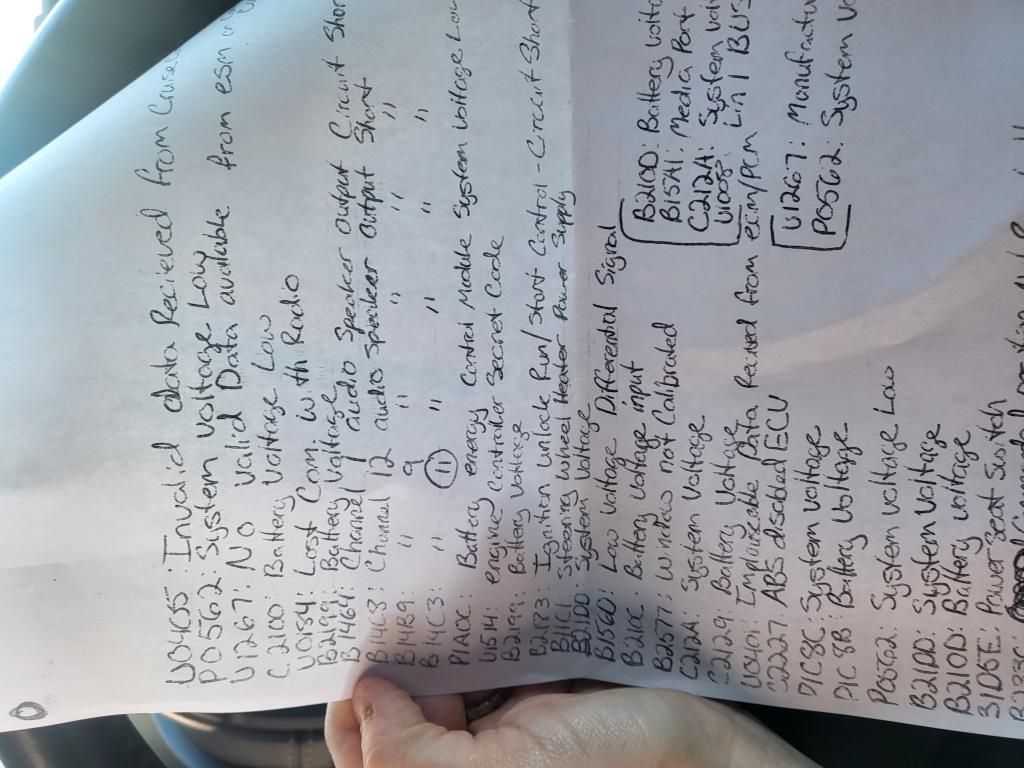 U0405: Invalid data Recieved from Cruise
P0562: System Voltage Low
U1267: No Valid Data available from esm
C2100: Battery Voltage Low
U0184: Lost Com. with Radio
B2199: Battery Voltage
B1464: Channel 1 audio Speaker output Circuit Short
B14C8: Channel 12 audio Speaker output Short
B14B9: " 9 " " " "
B14C3: " 11 " " " "
P1A0C: Battery energy Control Module System Voltage Low
U1514: engine controller Secret Code
B2199: Battery Voltage
B2183: Ignition unlock Run/Start Control - Circuit Short
B11C1 Steering wheel Heater Power Supply
B21DD: System Voltage
B156D: Low Voltage Differential Signal
B210C. Battery Voltage input
B2577: Window not Calibrated
C212A System Voltage
C2129: Battery Voltage
U0401: Implausable Data Recieved from ecm/pcm
C2227: ABS disabled ECU
P1C8C: System Voltage
P1C8B: Battery Voltage
P0562: System Voltage Low
B21DD: System Voltage
B210D: Battery Voltage
B1D5E: Power Seat Switch
B210D: Battery
B15A1: Media Port
C212A: System
Lin 1 BUS
U1267:
P0562: System